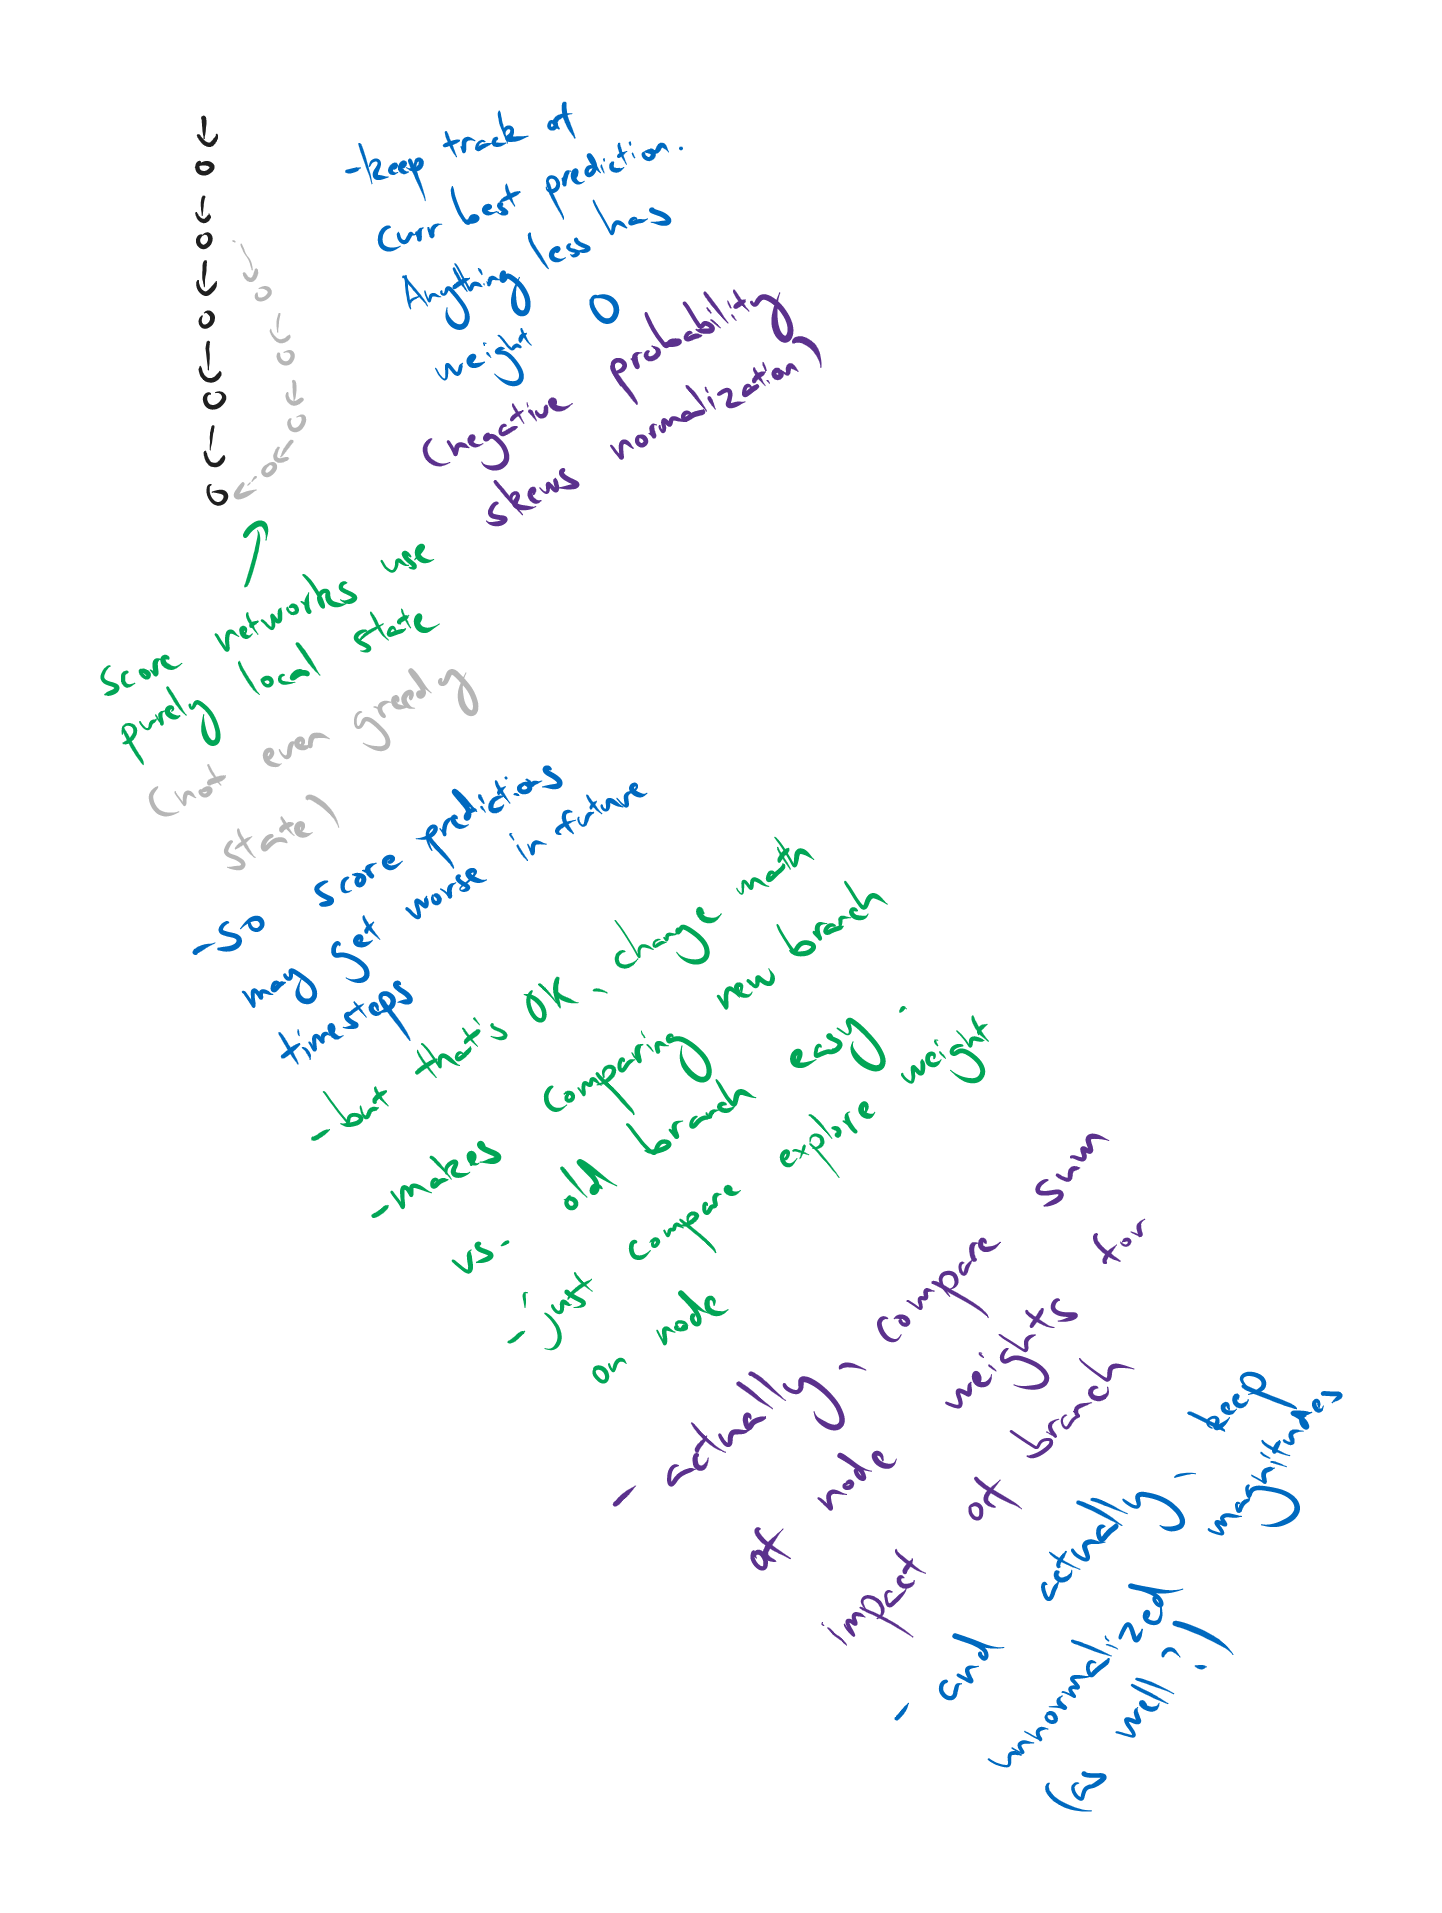 -keep track of
curr best prediction.
Anything less has
weight 0
(negative probability
skews normalization)
score networks use
purely local state
(not even greedy
state)
-so score predictions
may get worse in future
timesteps
-but that's OK, change math
-makes comparing new branch
vs. old branch easy.
-just compare explore weight
on node
- actually, compare sum
of node weights for
impact of branch
- and actually, keep
unnormalized magnitudes
(as well;)